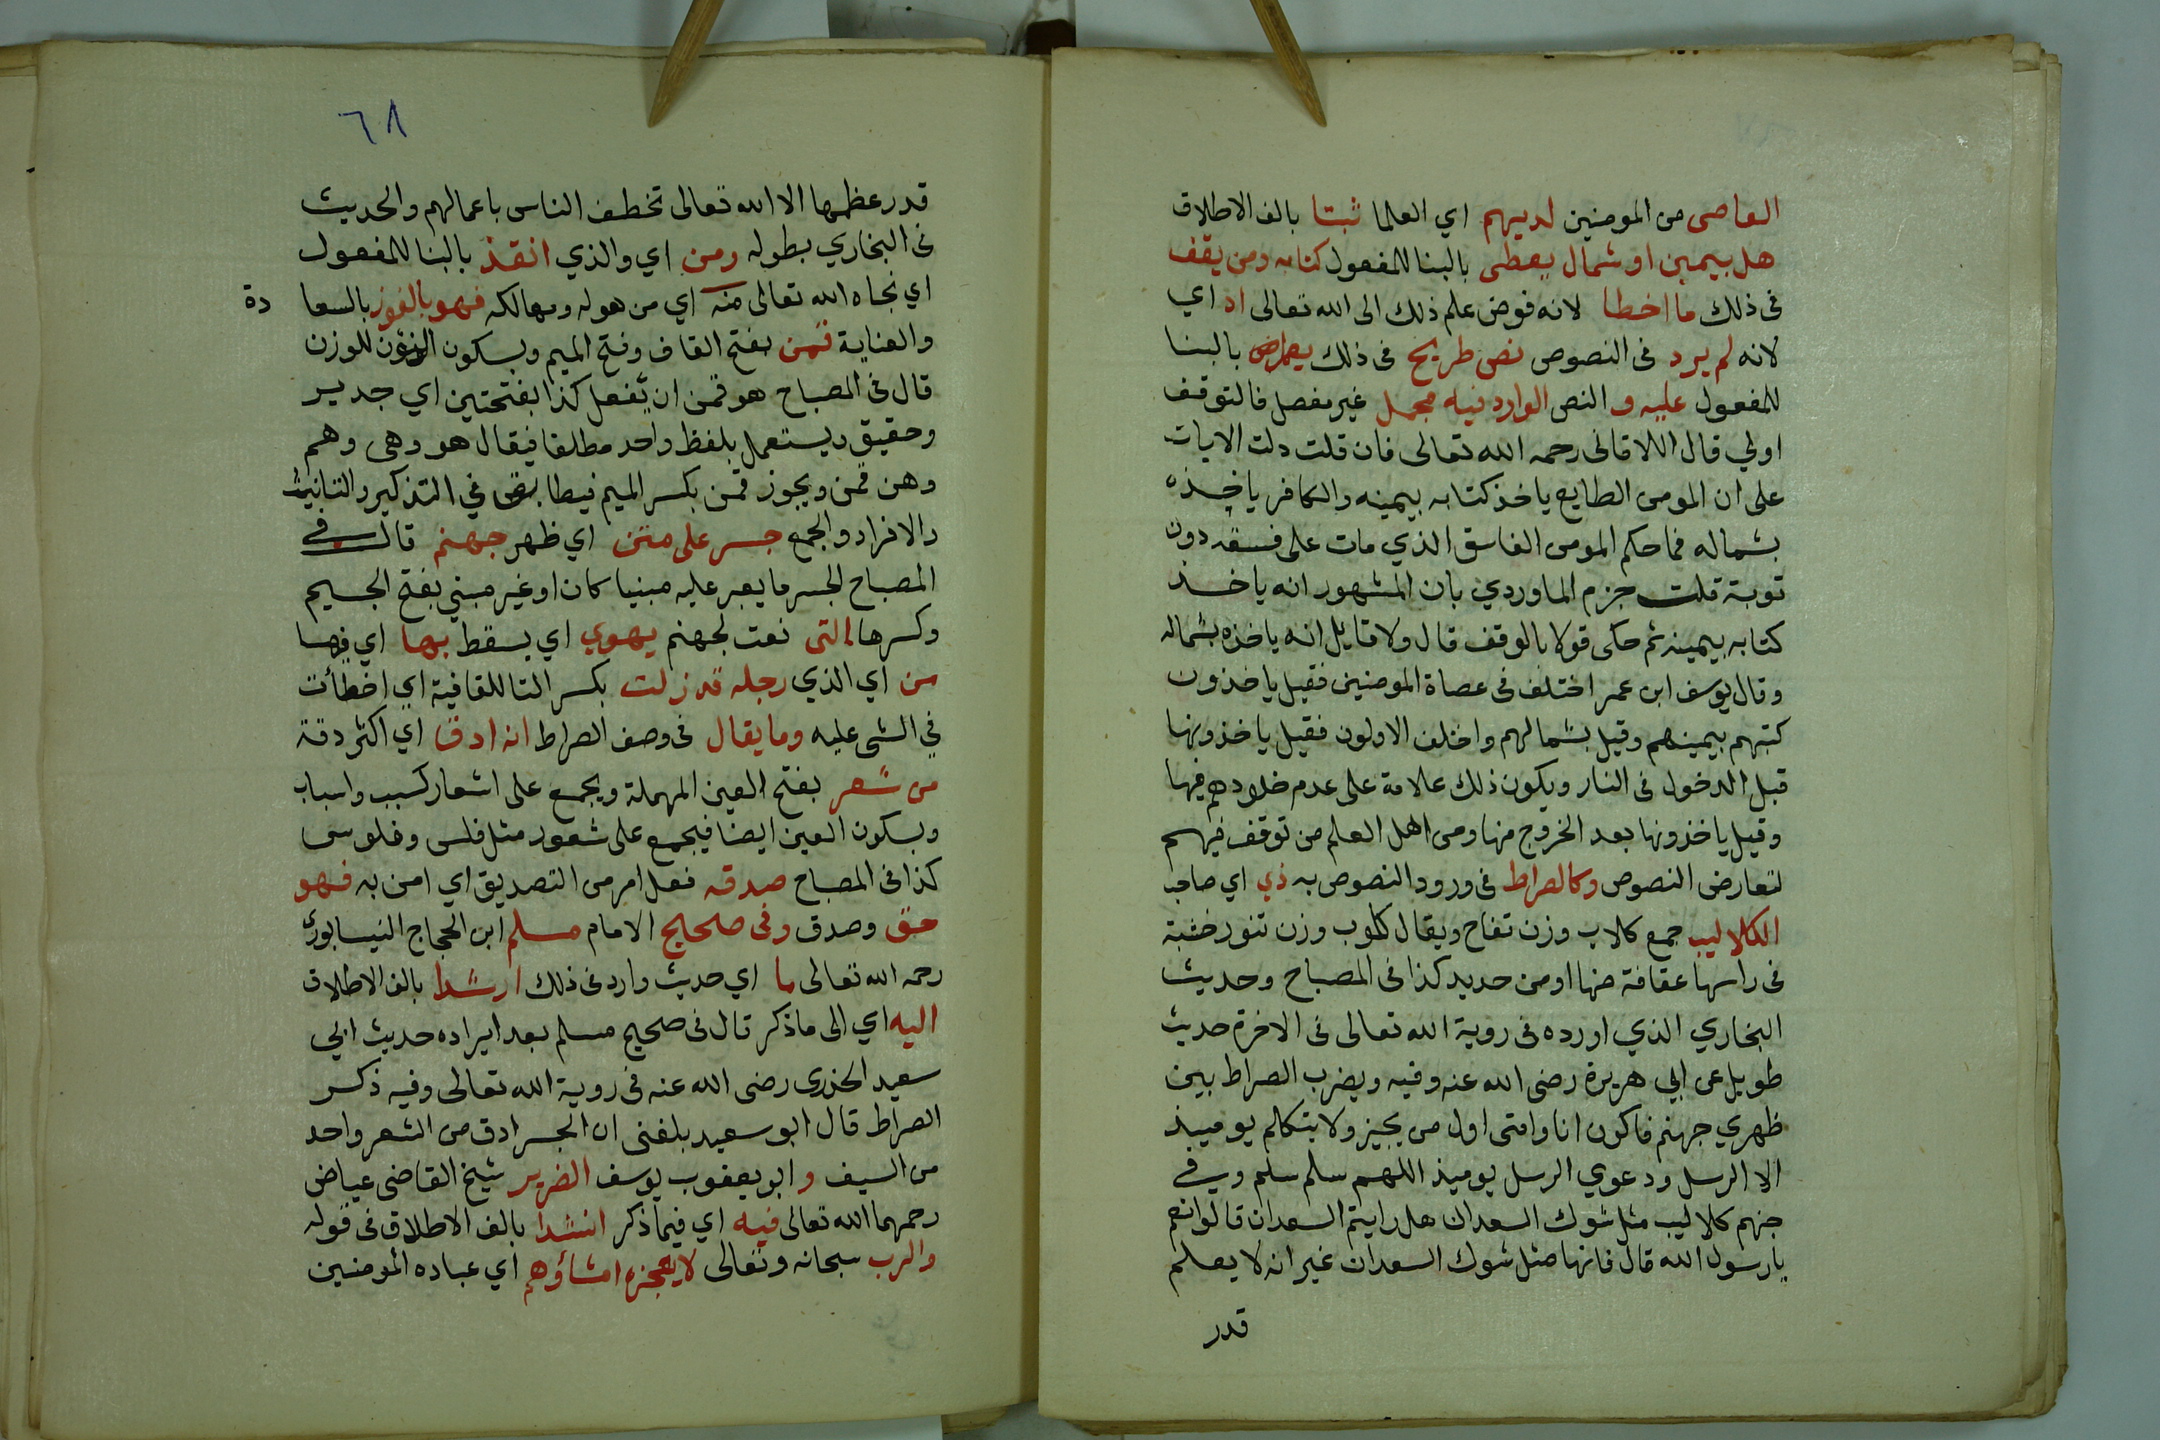 العاصى من المومنين لديهم اي العلما ثبتا بالف الاطلاق
هل بيمين او شمال يعطى بالبنا للمفعول كتابه ومن يقف
فى ذلك ما اخطا لانه فوض علم ذلك الى الله تعالى اذ اي
لانه لم يرد فى النصوص نص صريح فى ذلك يعارض بالبنا
للمفعول عليه و النص الوارد فيه مجمل غير مفصل فالتوقف
اولي قال اللاقانى رحمه الله تعالى فان قلت دلت الايات
على ان المومن الطايع ياخذ كتابه بيمينه والكافر ياخذه
بشماله فما حكم المومن الفاسق الذي مات على فسقه دون
توبة قلت جزم الماوردي بان المشهور انه ياخذ
كتابه بيمينه ثم حكى قولا بالوقف قال ولا قايل انه ياخذه بشماله
وقال يوسف ابن عمر اختلف فى عصاة المومنين فقيل ياخذون
كتبهم بيمينهم وقيل بشمالهم واختلف الاولون فقيل ياخذونها
قبل الدخول فى النار ويكون ذلك علامة على عدم خلودهم فيها
وقيل ياخذونها بعد الخروج منها ومن اهل العلم من توقف فيهم
لتعارض النصوص وكالصراط فى ورود النصوص به ذي اي صاحب
الكلاليب جمع كلاب وزن تفاح ويقال كلوب وزن تنور خشبة
فى راسها عقافة منها او من حديد كذا فى المصباح وحديث
البخاري الذي اورده فى روية الله تعالى فى الاخرة حديث
طويل عن ابي هريرة رضى الله عنه وفيه ويضرب الصراط بين
ظهري جهنم فاكون انا وامتى اول من يجيز ولا يتكلم يوميذ
الا الرسل ودعوي الرسل يوميذ اللهم سلم سلم وفي
جهنم كلاليب مثل شوك السعدان هل رايتم السعدان قالوا نعم
يا رسول الله قال فانها مثل شوك السعدان غير انه لا يعلم
قدر
٦٨
قدر عظمها الا الله تعالى تخطف الناس باعمالهم والحديث
فى البخاري بطوله ومن اي والذي انقذ بالبنا للمفعول
اي نجاه الله تعالى منه اي من هوله ومهالكه فهو بالفوز بالسعا دة
والعناية قمن بفتح القاف وفتح الميم وبسكون النون للوزن
قال فى المصباح هو قمن ان يفعل كذا بفتحتين اي جدير
وحقيق ويستعمل بلفظ واحد مطلقا فيقال هو وهى وهم
وهن قمن ويجوز قمن بكسر الميم فيطابق في التذكير والتانيث
والافراد والجمع جسر على متن اي ظهر جهنم قال فى
المصباح الجسر ما يعبر عليه مبنيا كان او غير مبني بفتح الجيم
وكسرها التى نعت لجهنم يهوي اي يسقط بها اي فيها
من اي الذي رجله قد زلت بكسر التا للقافية اي اخطأت
في المشى عليه وما يقال فى وصف الصراط انه ادق اي اكثر دقة
من شعر بفتح العين المهملة ويجمع على اشعار كسبب واسباب
وبسكون العين ايضا فيجمع على شعور مثل فلس وفلوس
كذا فى المصباح صدقه فعل امر من التصديق اي امن به فهو
حق وصدق وفى صحيح الامام مسلم ابن الحجاج النيسابوري
رحمه الله تعالى ما اي حديث وارد فى ذلك ارشدا بالف الاطلاق
اليه اي الى ما ذكر قال فى صحيح مسلم بعد ايراده حديث ابي
سعيد الخدرى رضى الله عنه فى روية الله تعالى وفيه ذكر
الصراط قال ابو سعيد بلغنى ان الجسر ادق من الشعر واحد
من السيف و ابو يعقوب يوسف الضرير شيخ القاضى عياض
رحمهما الله تعالى فيه اي فيما ذكر انشدا بالف الاطلاق فى قوله
والرب سبحانه وتعالى لا يعجزه امشاؤهم اي عباده المومنين